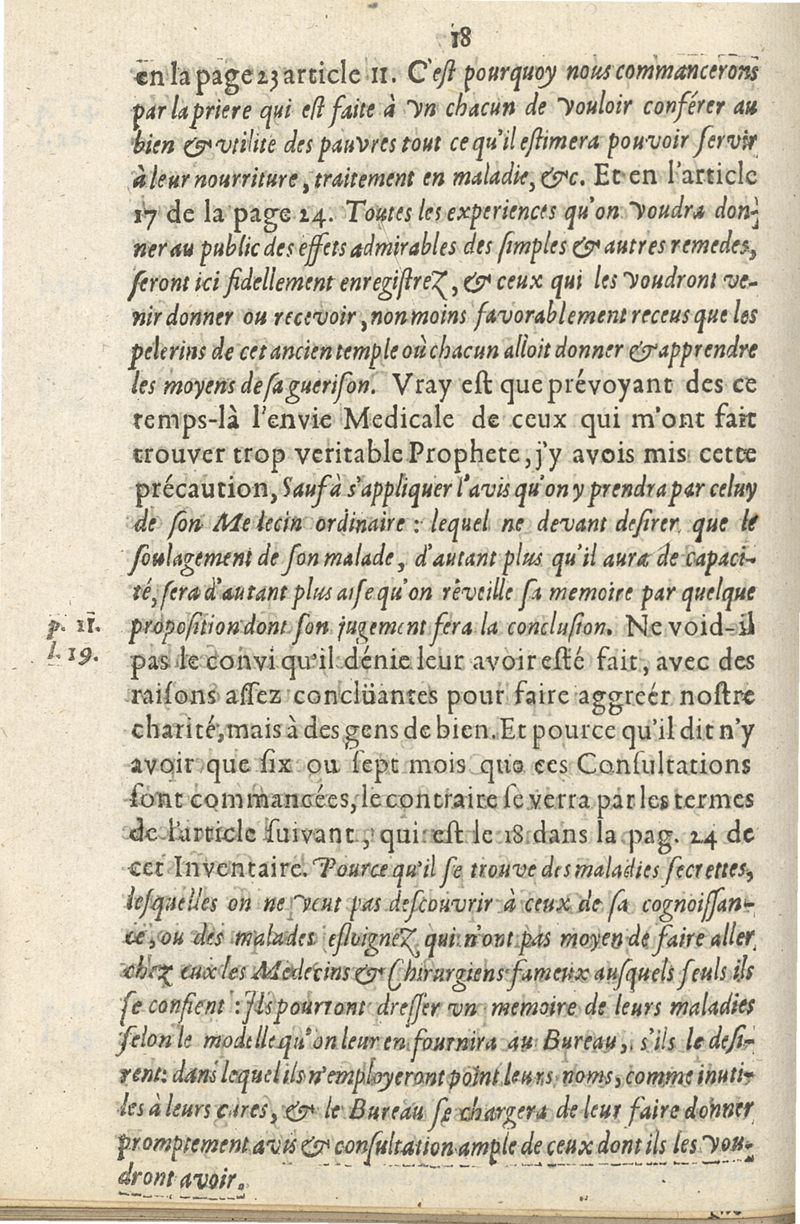 18
en la page 23 article 11. C'est pourquoy nous commancerons
par la priere qui est faite à vn chacun de vouloir conférer au
bien & vtilité des pauvres tout ce qu'il estimera pouvoir servir
à leur nourriture, traitement en maladie, &c. Et en l'article
17 de la page 24. Toutes les experiences qu'on voudra don-
ner au public des effets admirables des simples & autres remedes,
seront ici fidellement enregistrez, & ceux qui les voudront ve-
nir donner ou recevoir, non moins favorablement receus que les
pelerins de cet ancien temple où chacun alloit donner & apprendre
les moyens de sa guerison. Vray est que prévoyant des ce
temps-là l'envie Medicale de ceux qui m'ont fait
trouver trop veritable Prophete, j'y avois mis cette
précaution, Sauf à s'appliquer l'avis qu'on y prendra par celuy
de son Medecin ordinaire : lequel ne devant desirer que le
soulagement de son malade, d'autant plus qu'il aura de capaci-
té, sera d'autant plus aise qu'on rêveille sa memoire par quelque
p. 11. proposition dont son jugement fera la conclusion. Ne void-il
l. 19. pas le convi qu'il dénie leur avoir esté fait, avec des
raisons assez conclüantes pour faire aggreér nostre
charité, mais à des gens de bien. Et pource qu'il dit n'y
avoir que six ou sept mois que ces Consultations
sont commancées, le contraire se verra par les termes
de l'article suivant, qui est le 18 dans la pag. 24 de
cet Inventaire. Pource qu'il se trouve des maladies secrettes,
lesquelles on ne veut pas descouvrir à ceux de sa cognoissan-
ce, ou des malades esloignez qui n'ont pas moyen de faire aller
chez eux les Medecins & Chirurgiens fameux ausquels seuls ils
se confient : Ils pourront dresser vn memoire de leurs maladies
selon le modelle qu'on leur en fournira au Bureau, s'ils le desi-
rent: dans lequel ils n'employeront point leurs noms, comme inuti-
les à leurs cures, & le Bureau se chargera de leur faire donner
promptement avis & consultation ample de ceux dont ils les vou-
dront avoir.